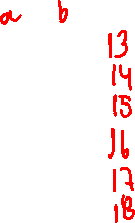 a b
13
14
15
16
17
18